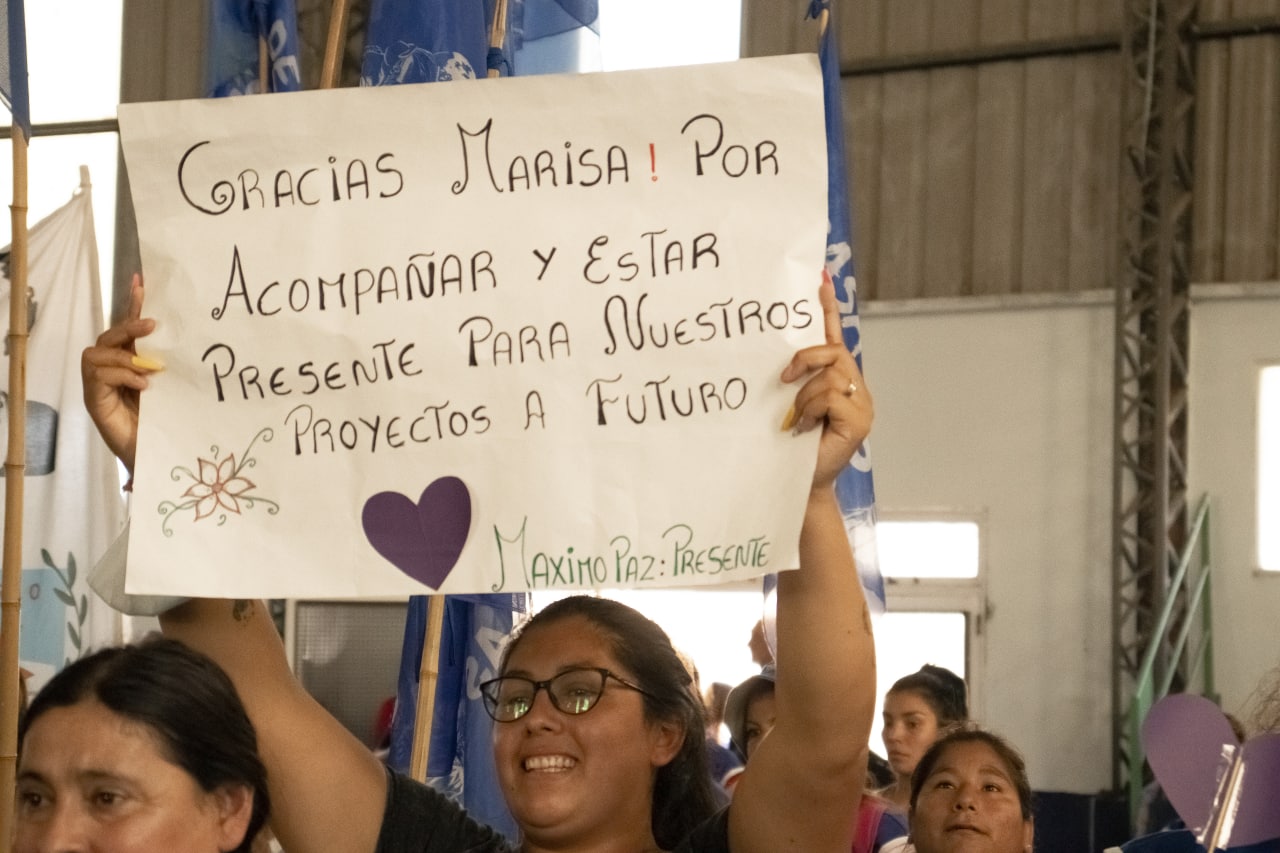 Gracias Marisa! Por
Acompañar y Estar
Presente Para Nuestros
Proyectos a Futuro
Maximo Paz: Presente